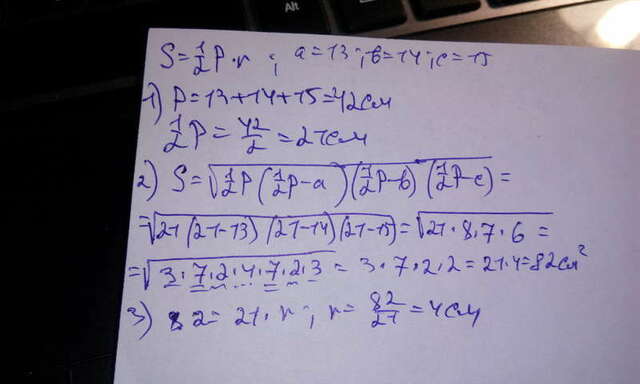 Alt
S=½P·r ; a=13 ; b=14 ; c=15
1) P=13+14+15=42см
½P=42/2=21см
2) S=√(½P(½P-a)(½P-b)(½P-c))=
=√(21(21-13)(21-14)(21-15))=√(21·8·7·6)=
=√(3·7·2·4·7·2·3)=3·7·2·2=21·4=82см²
3) 82=21·r ; r=82/21=4см